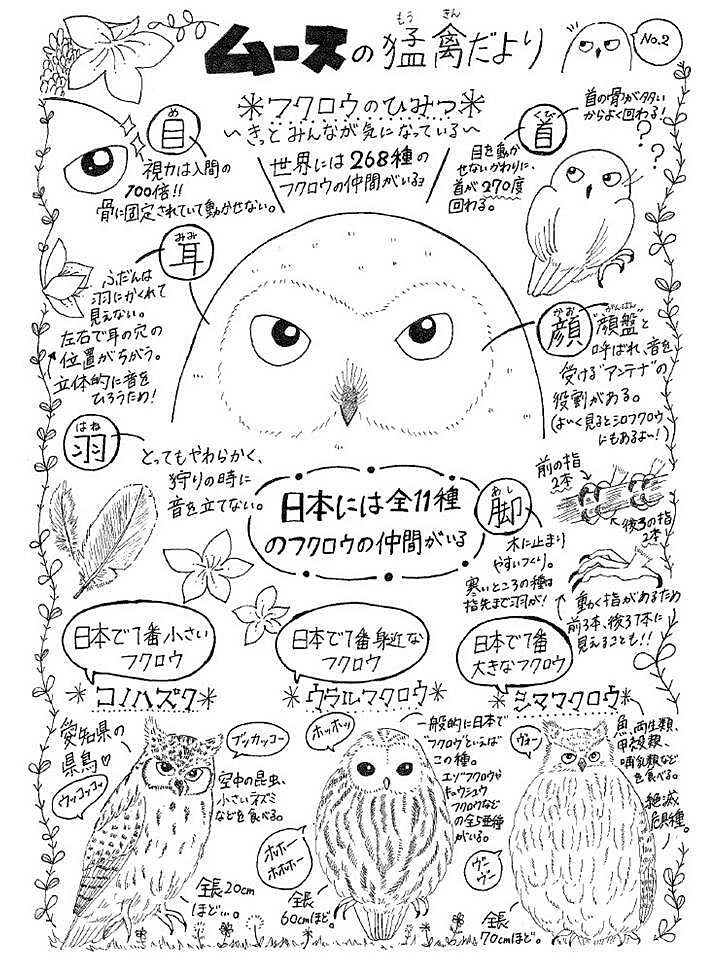 ムースの猛禽だより
もう きん
No.2
＊フクロウのひみつ＊
〜きっとみんなが気になっている〜
世界には268種の
フクロウの仲間がいるョ
目
め
視力は人間の
100倍!!
骨に固定されていて動かせない。
首
くび
首の骨が多い
からよく回わる!
??
目を動か
せないかわりに、
首が270度
回わる。
耳
みみ
ふだんは
羽にかくれて
見えない。
左右で耳の穴の
位置がちがう。
立体的に音を
ひろうため!
顔
かお
がんばん
"顔盤"と
呼ばれ、音を
受ける"アンテナ"の
役割がある。
(よ〜く見るとシロフクロウ
にもあるよ〜!)
羽
はね
とってもやわらかく、
狩りの時に
音を立てない。
日本には全11種
のフクロウの仲間がいる
脚
あし
木に止まり
やすいつくり。
寒いところの種は
指先まで羽が!
前の指
2本
後ろの指
2本
動く指があるため
前3本、後ろ1本に
見えることも!!
日本で1番小さい
フクロウ
＊コノハズク＊
愛知県の
県鳥♡
ブッカッコー
ウッコッコッ
空中の昆虫、
小さいネズミ
などを食べる。
全長20cm
ほど…。
日本で1番身近な
フクロウ
＊ウラルフクロウ＊
ホッホッ
一般的に日本で
"フクロウ"といえば
この種。
エゾフクロウや
キュウシュウ
フクロウなど
の全5亜種
がいる。
ホホー
ホホホー
全長
60cmほど。
日本で1番
大きなフクロウ
＊シマフクロウ＊
ヴォー
魚、両生類、
甲殻類、
哺乳類など
を食べる。
絶滅
危惧種。
ヴー
ヴー
全長
70cmほど。